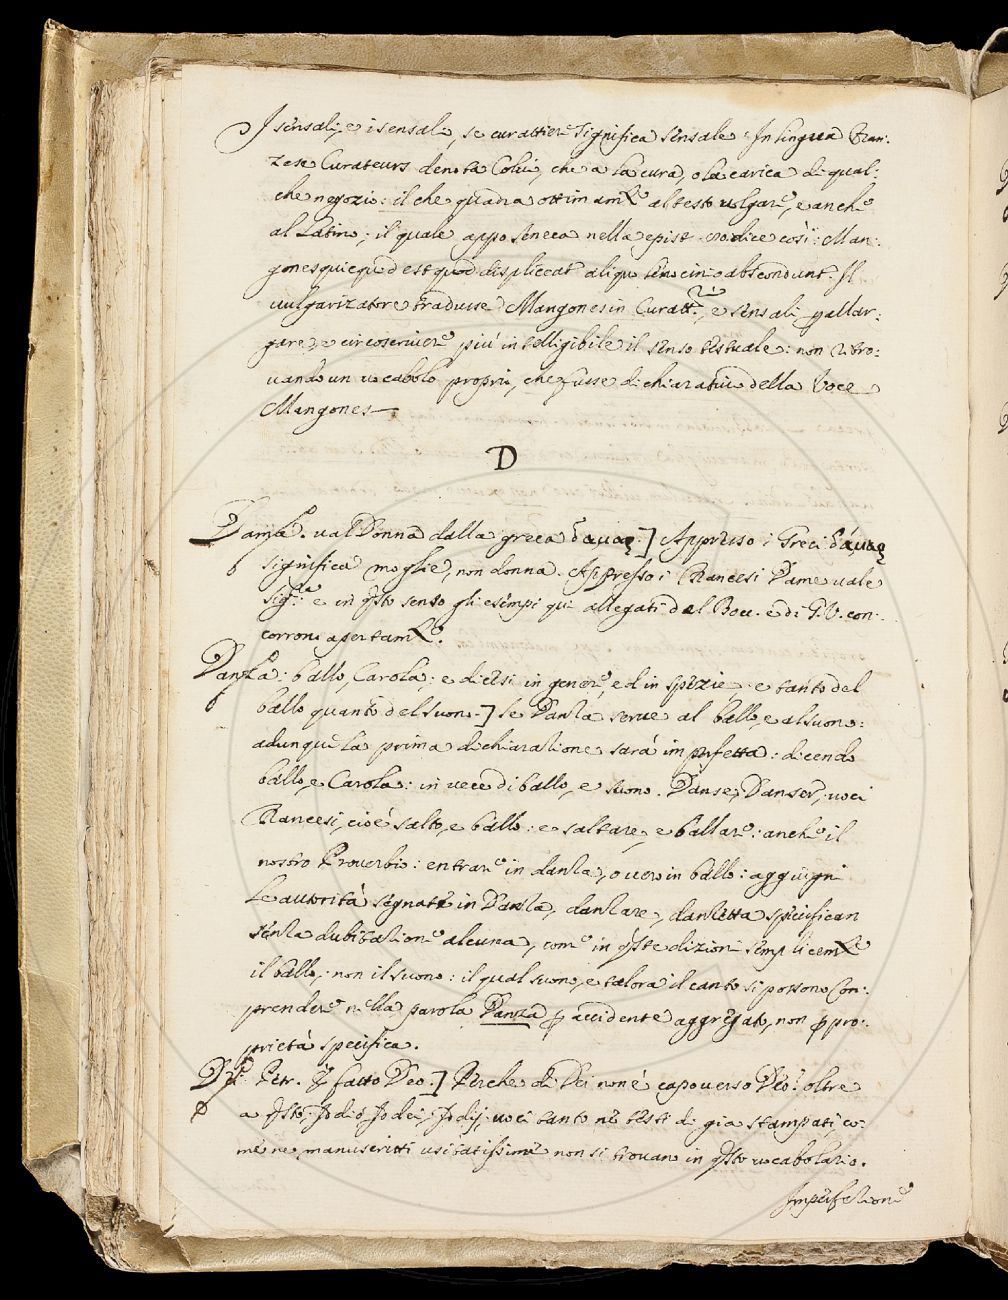 I sensali, e i sensali, se curattiere significa sensale. In lingua Fran:
zese Curateurs denota Colui, che a la cura, o la carica di qual:
che negozio: il che quadra ottimam.te al testo volgare, e anche
al Latino; il quale appo Seneca nella epist. 80. dice così: Man:
gones quicquid est quod displiceat aliquo lenocinio abscondunt. Il
vulgarizatore tradusse Mangones in Curatt.ri, e sensali, p allar:
gare, e circoscrivere più intelligibile il senso testuale: non ritro:
vando un vocabolo proprio, che fusse dichiarativo della Voce
Mangones
D
Dama. val Donna dalla greca δάμαρ.] Appresso i Greci δάμαρ
significa moglie, non donna. Appresso i Francesi Dame vale
sig.ra: e in qsto senso gli esempi qui allegati dal Bocc. e di G.V. con:
corrono apertam.te.
Danza: ballo, Carola; e dicesi in genere, ed in spezie, e tanto del
ballo quanto del suono.] Se Danza serve al ballo, e al suono:
adunque la prima dichiarazione sarà imperfetta: dicendo
ballo, e Carola: in vece di ballo, e suono. Danse, Danser, voci
Francesi, cioè salto, e ballo: e saltare, e ballare: anche il
nostro Proverbio: entrare in danza, o vero in ballo: aggiugni
Le autorità segnate in Danza, danzare, danzetta specifican
senza dubitazione alcuna, come in qste dizioni semplicem.te
il ballo, non il suono: il qual suono, e talora il canto si possono Con:
prendere nella parola Danza p accidente aggregato, non p pro:
prietà specifica.
Petr. fatto Deo.] Perche di Dei non è capoverso Dèo? oltre
a qsto, voci tanto ne testi di già stampati, co:
me ne manuscritti usitatissime non si trovano in qsto vocabolario.
Imperfezione